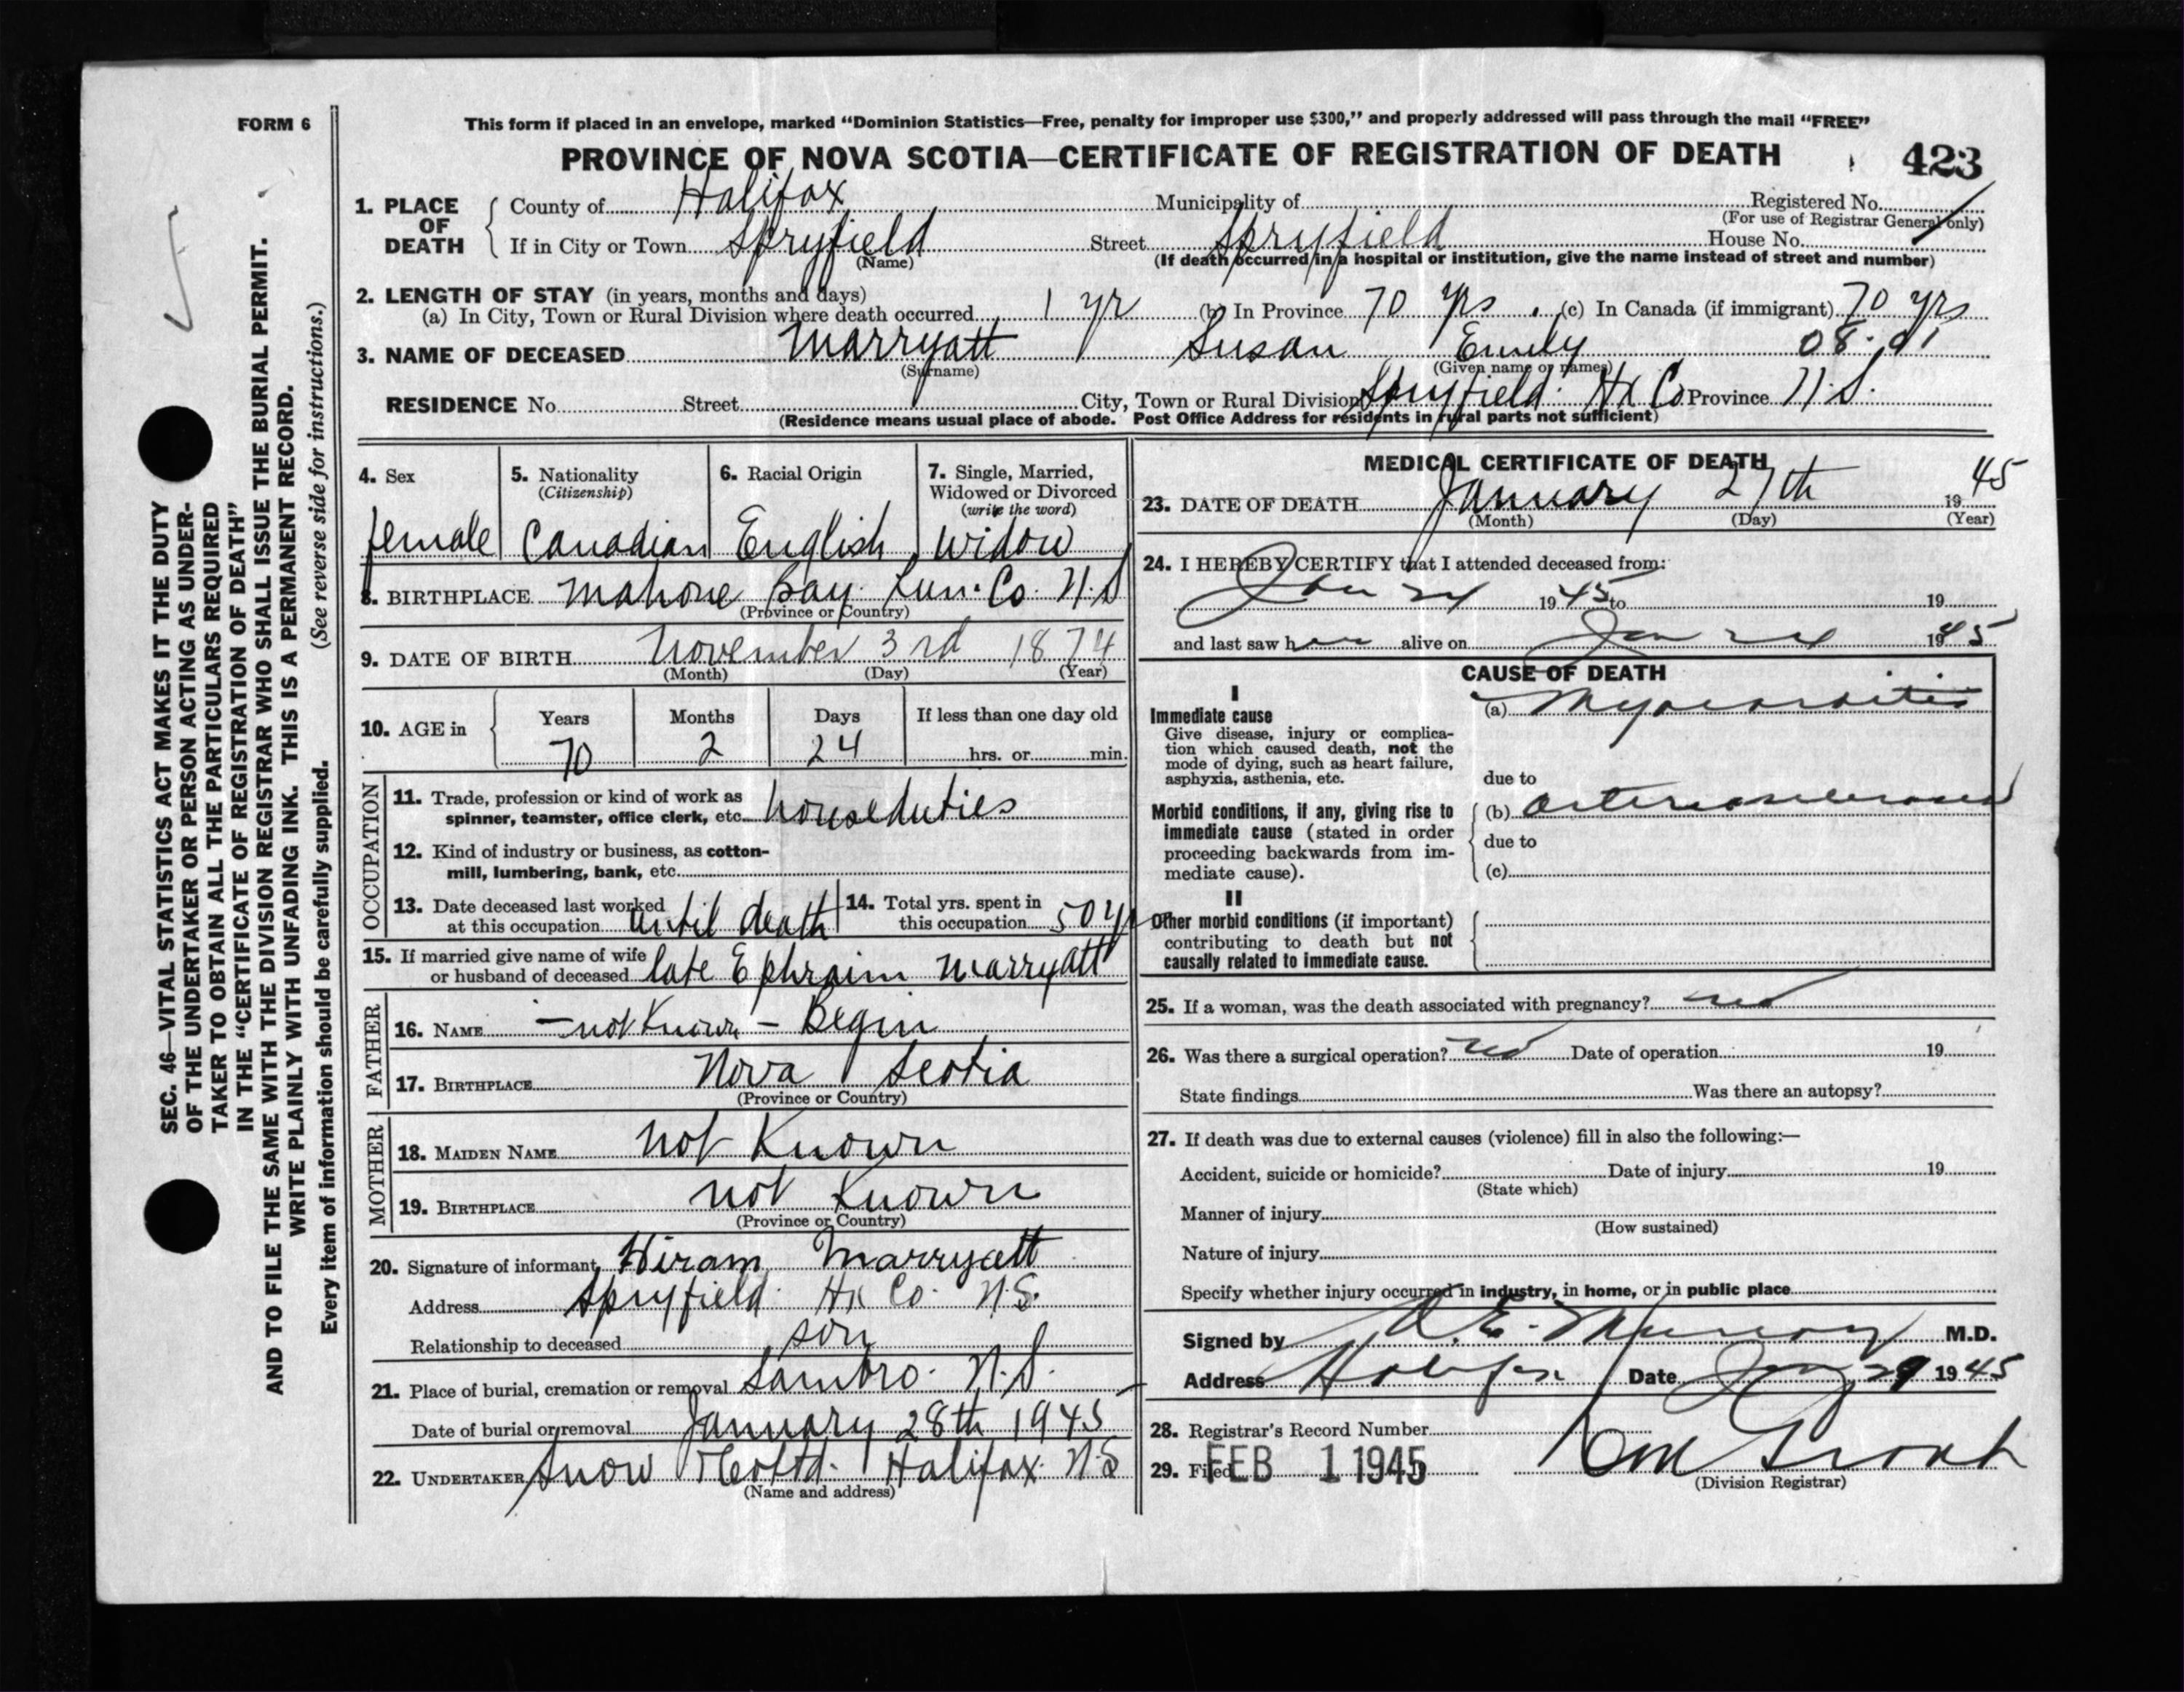 FORM 6
This form if placed in an envelope, marked "Dominion Statistics—Free, penalty for improper use $300," and properly addressed will pass through the mail "FREE"
PROVINCE OF NOVA SCOTIA—CERTIFICATE OF REGISTRATION OF DEATH
423
1. PLACE OF DEATH
County of Halifax Municipality of Registered No.
(For use of Registrar General only)
If in City or Town Spryfield Street Spryfield House No.
(Name) (If death occurred in a hospital or institution, give the name instead of street and number)
2. LENGTH OF STAY (in years, months and days)
(a) In City, Town or Rural Division where death occurred 1 yr (b) In Province 70 yrs. (c) In Canada (if immigrant) 70 yrs
3. NAME OF DECEASED Marryatt Susan Emily 08.01
(Surname) (Given name or names)
RESIDENCE No. Street City, Town or Rural Division Spryfield. Hx Co Province N.S.
(Residence means usual place of abode. Post Office Address for residents in rural parts not sufficient)
4. Sex
female
5. Nationality
(Citizenship)
Canadian
6. Racial Origin
English
7. Single, Married,
Widowed or Divorced
(write the word)
Widow
8. BIRTHPLACE Mahone Bay. Lun. Co. N.S
(Province or Country)
9. DATE OF BIRTH November 3rd 1874
(Month) (Day) (Year)
10. AGE in
Years Months Days If less than one day old
70 2 24 hrs. or min.
OCCUPATION
11. Trade, profession or kind of work as
spinner, teamster, office clerk, etc. houseduties
12. Kind of industry or business, as cotton-
mill, lumbering, bank, etc.
13. Date deceased last worked
at this occupation until death
14. Total yrs. spent in
this occupation 50 yr
15. If married give name of wife
or husband of deceased late Ephraim Marryatt
FATHER
16. NAME – not Known – Begin
17. BIRTHPLACE Nova Scotia
(Province or Country)
MOTHER
18. MAIDEN NAME not Known
19. BIRTHPLACE not Known
(Province or Country)
20. Signature of informant Hiram Marryatt
Address Spryfield. Hx Co. N.S.
Relationship to deceased son
21. Place of burial, cremation or removal Sambro. N.S.
Date of burial or removal January 28th 1945
22. UNDERTAKER Snow & Co Ltd. Halifax N.S
(Name and address)
MEDICAL CERTIFICATE OF DEATH
23. DATE OF DEATH January 27th 1945
(Month) (Day) (Year)
24. I HEREBY CERTIFY that I attended deceased from:
Jan 24 1945 to 19
and last saw her alive on Jan 24 1945
CAUSE OF DEATH
I
Immediate cause
Give disease, injury or complica-
tion which caused death, not the
mode of dying, such as heart failure,
asphyxia, asthenia, etc.
(a) Myocarditis
due to
Morbid conditions, if any, giving rise to
immediate cause (stated in order
proceeding backwards from im-
mediate cause).
(b) Arteriosclerosis
due to
(c)
II
Other morbid conditions (if important)
contributing to death but not
causally related to immediate cause.
25. If a woman, was the death associated with pregnancy? no
26. Was there a surgical operation? no Date of operation 19
State findings Was there an autopsy?
27. If death was due to external causes (violence) fill in also the following:—
Accident, suicide or homicide? Date of injury 19
(State which)
Manner of injury
(How sustained)
Nature of injury
Specify whether injury occurred in industry, in home, or in public place
Signed by A. E. Murray M.D.
Address Halifax Date Jan 29 1945
28. Registrar's Record Number
29. Filed FEB 1 1945
(Division Registrar)
SEC. 46—VITAL STATISTICS ACT MAKES IT THE DUTY
OF THE UNDERTAKER OR PERSON ACTING AS UNDER-
TAKER TO OBTAIN ALL THE PARTICULARS REQUIRED
IN THE "CERTIFICATE OF REGISTRATION OF DEATH"
AND TO FILE THE SAME WITH THE DIVISION REGISTRAR WHO SHALL ISSUE THE BURIAL PERMIT.
WRITE PLAINLY WITH UNFADING INK. THIS IS A PERMANENT RECORD.
Every item of information should be carefully supplied. (See reverse side for instructions.)